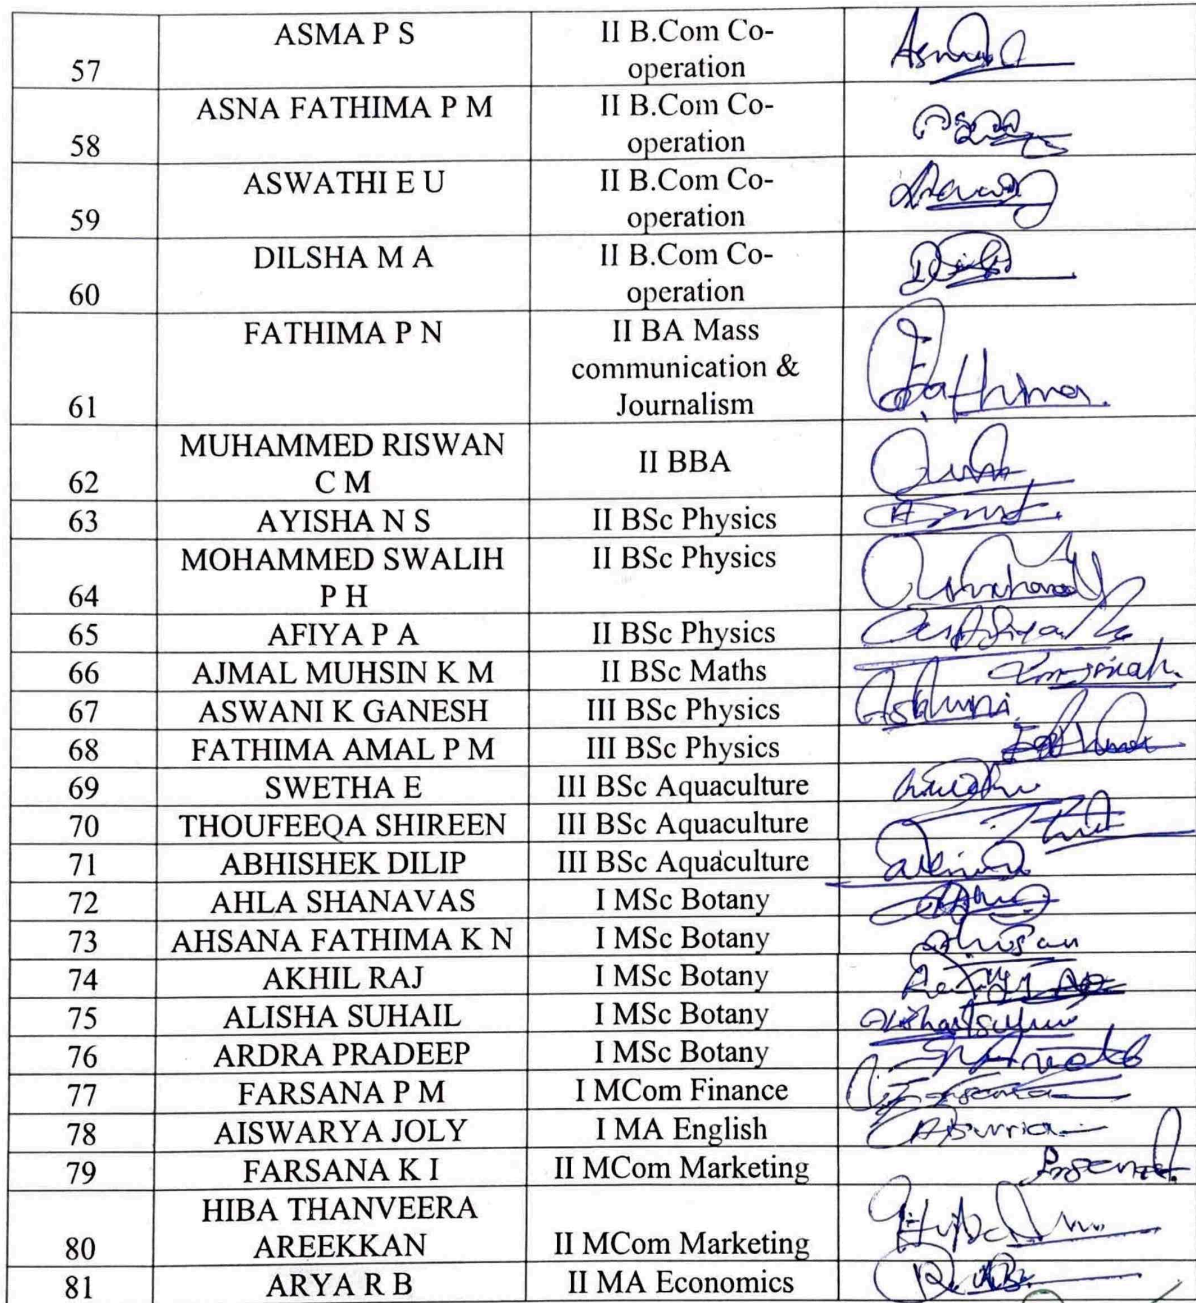 57 ASMA P S II B.Com Co-
operation
58 ASNA FATHIMA P M II B.Com Co-
operation
59 ASWATHI E U II B.Com Co-
operation
60 DILSHA M A II B.Com Co-
operation
61 FATHIMA P N II BA Mass
communication &
Journalism Fathima.
62 MUHAMMED RISWAN II BBA
C M
63 AYISHA N S II BSc Physics
64 MOHAMMED SWALIH II BSc Physics
P H
65 AFIYA P A II BSc Physics
66 AJMAL MUHSIN K M II BSc Maths
67 ASWANI K GANESH III BSc Physics
68 FATHIMA AMAL P M III BSc Physics
69 SWETHA E III BSc Aquaculture
70 THOUFEEQA SHIREEN III BSc Aquaculture
71 ABHISHEK DILIP III BSc Aquaculture
72 AHLA SHANAVAS I MSc Botany
73 AHSANA FATHIMA K N I MSc Botany
74 AKHIL RAJ I MSc Botany
75 ALISHA SUHAIL I MSc Botany
76 ARDRA PRADEEP I MSc Botany
77 FARSANA P M I MCom Finance
78 AISWARYA JOLY I MA English
79 FARSANA K I II MCom Marketing
80 HIBA THANVEERA
AREEKKAN II MCom Marketing
81 ARYA R B II MA Economics